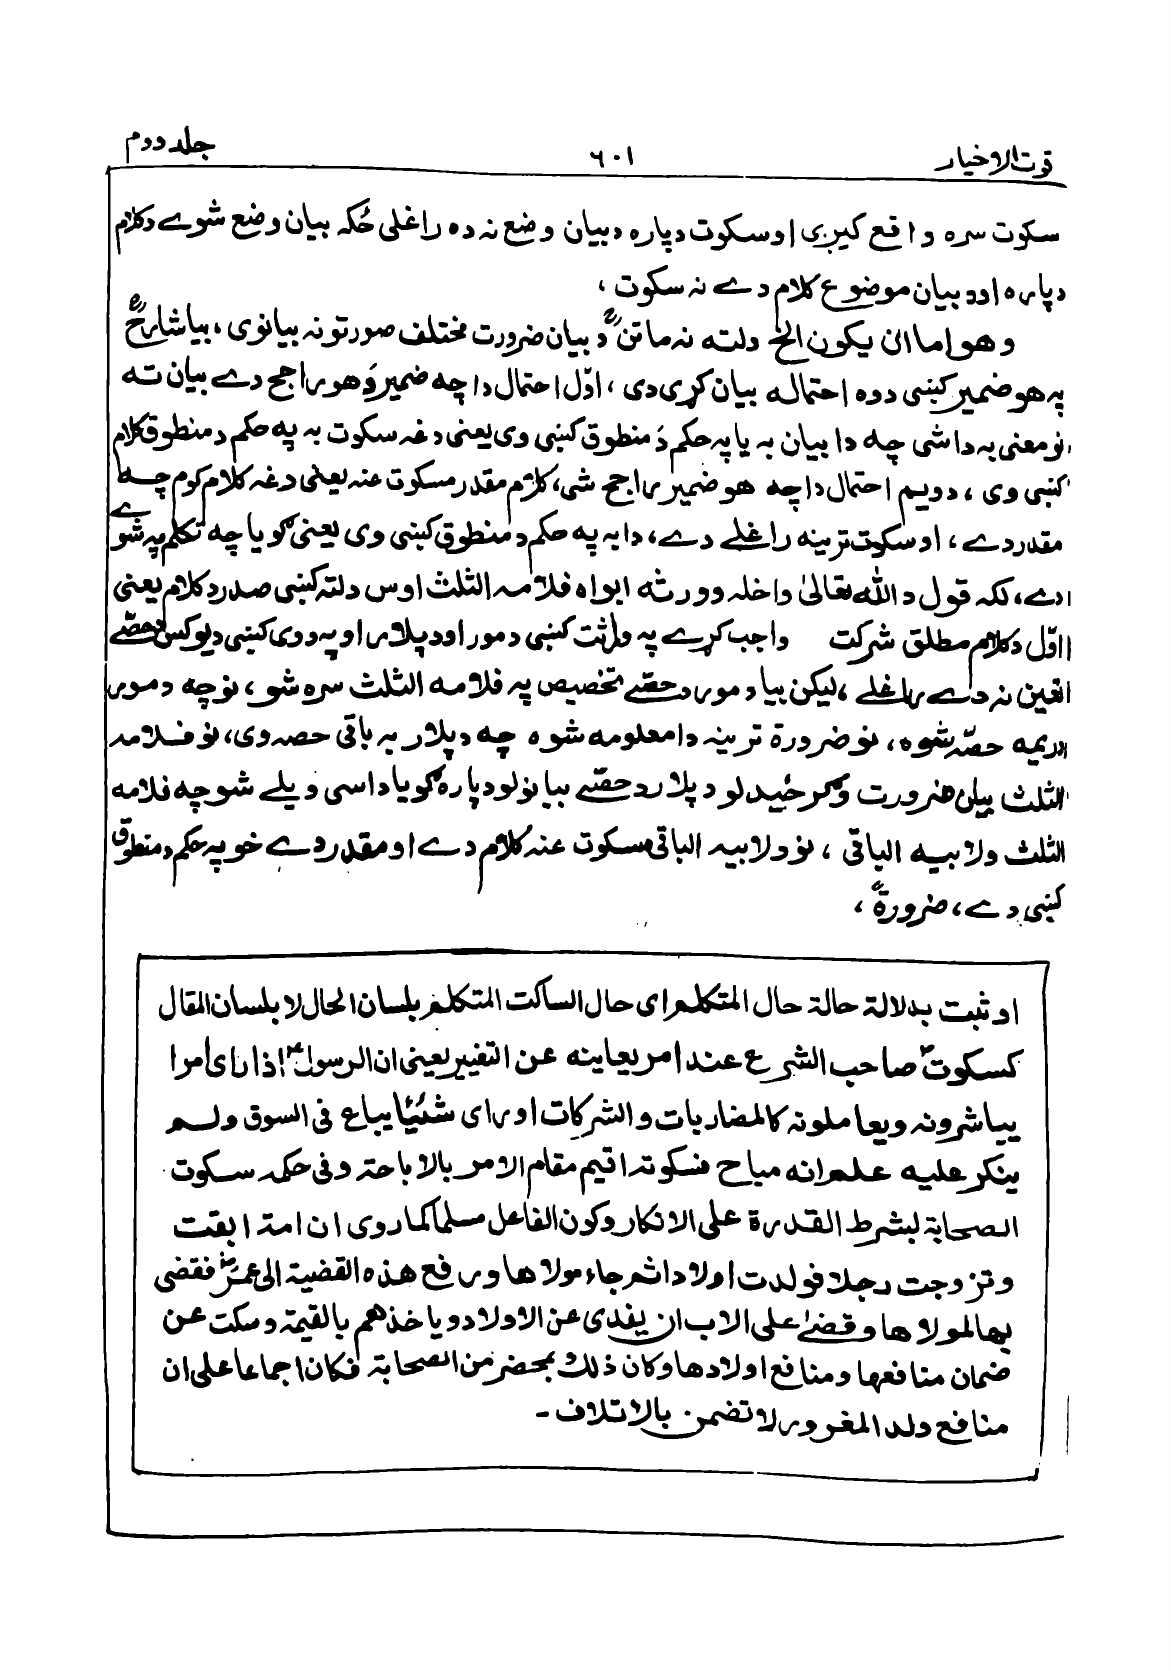 قوت الاخیار ۶۰۱ جلد دوم
سکوت سره واقع کیږی او سکوت دپاره دبیان وضع نه ده راغلی ځکه بیان وضع شوے دکلام
دپاره اودبیان موضوع کلام دے نه سکوت ،
وهو اما ان یکون الخ دلته نه ماتنؒ دَ بیان ضرورت مختلف صورتونه بیانوی ، بیا شارحؒ
په هو ضمیر کښی دوه احتماله بیان کړی دی ، اوّل احتمال داچه ضمیر دَ هو راجح دے بیان ته
نو معنی به داشی چه دا بیان به یا په حکم دَ منطوق کښی وی یعنی دغه سکوت به په حکم دمنطوق کلام
کښی وی ، دویم احتمال داچه هو ضمیر راجح شی، کلام مقدر مسکوت عنه یعنی دغه کلام کوم چه
مقدر دے ، او سکوت ترینه راغلے دے ، دا به په حکم دمنطوق کښی وی یعنی گویا چه تکلم په شوے
دے، لکه قول دالله تعالیٰ واخله وورثه ابواه فلامه الثلث اوس دلته کښی صدر دکلام یعنی
اوّل دکلام مطلق شرکت واجب کړے په وراثت کښی دمور اودپلار او په دوی کښی دیوکس دحصّے
تعین نه دے راغلے ، لیکن بیا دمور دحصّے تخصیص په فلامه الثلث سره شو ، نوچه دمور
دریمه حصّه شوه ، نو ضرورة ترینه دا معلومه شوه چه دپلار به باقی حصه وی، نو فلامه
الثلث بیان ضرورت وګرځیدلو دپلار دحصّے بیانولو دپاره گویا داسی ویلے شو چه فلامه
الثلث ولابیه الباقی ، نو ولابیه الباقی مسکوت عنه کلام دے او مقدر دے خو په حکم دمنطوق
کښی دے، ضرورةً ،
او ثبت بدلالة حالة حال المتکلم ای حال الساکت المتکلم بلسان الحال لا بلسان المقال
کسکوت صاحب الشرع عند امر یعاینه عن التغییر یعنی ان الرسولؐ اذا رای امرا
یباشرونه ویعاملونه کالمضاربات والشرکات او رای شئیا یباع فی السوق ولم
ینکر علیه علم انه مباح فسکوته اقیم مقام الامر بالاباحة وفی حکمه سکوت
الصحابة لبشرط القدرة علی الانکار وکون الفاعل مسلما کما روی ان امة ابقت
وتزوجت رجلا فولدت اولادا ثم جاء مولاها ورفع هذه القضیة الی عمرؓ فقضی
بها لمولاها وقضیٰ علی الاب ان یفدی عن الاولاد ویاخذهم بالقیمة وسکت عن
ضمان منافعها ومنافع اولادها وکان ذلك بمحضر من الصحابة فکان اجماعا علی ان
منافع ولد المغرور لا تضمن بالاتلاف -